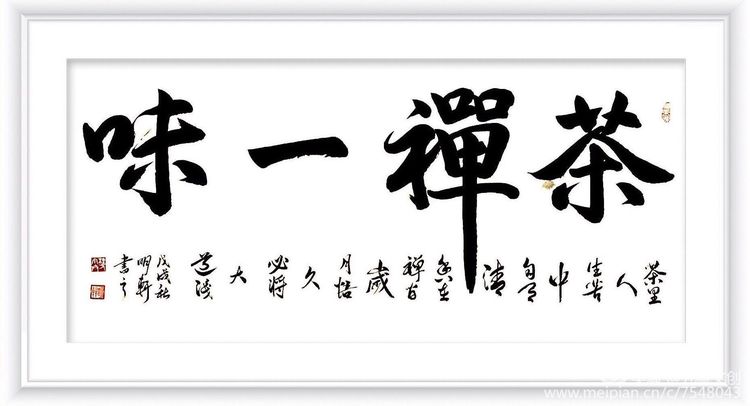 茶禪一味
茶里人生苦中自有清香在禪歲月悟久必将大道
戊戌秋
明軒
書之
www.meipian.cn/c/7548043